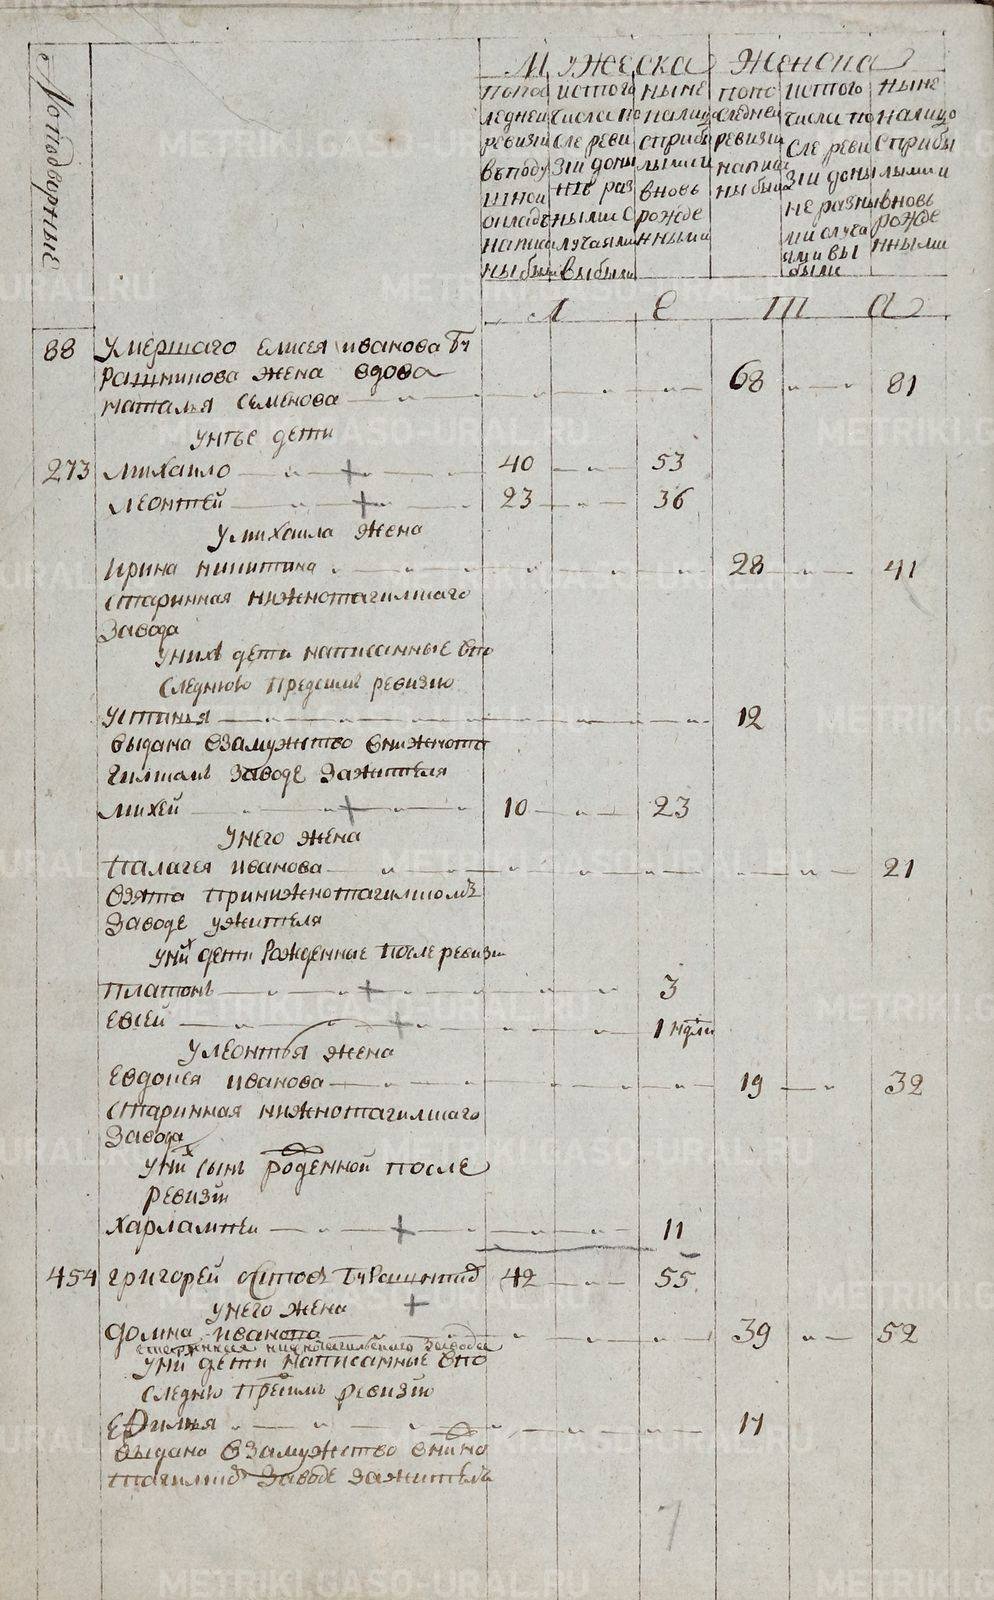 № подворные
Мужеска Женска
попос
ледней
ревизии
в поду
шной
окладъ
написа
ны были
ис того
числа по
сле реви
зии доны
нѣ раз
ными с
лучаями
выбыли
ныне
налицо
с прибы
лыми и
вновь
рожде
нными
попо
следней
ревизии
написа
ны были
ис того
числа по
сле реви
зии доны
не разны
ми случа
ями вы
были
ныне
налицо
с прибы
лыми и
вновь
рожде
нными
Л е т а
88 умершаго елисея иванова
жена вдова 68 81
наталья семенова
у нее дети
273 михаило 40 53
леонтей 23 36
у михаила жена
ирина никитина 28 41
старинная нижнотагилскаго
завода
у них дети написанные впо
следнюю пред сим ревизию
устинья 12
выдана взамужство внижнота
гилском заводе за жителя
михей 10 23
у него жена
палагея иванова 21
взята при нижнотагилском
заводе у жителя
у них дети рожденные после ревизи
платонъ 3
евсей 1 ндли
у леонтья жена
евдокея иванова 19 32
старинная нижнотагилскаго
завода
у них сынъ роденной после
ревизи
харлампей 11
454 григорей 42 55
у него жена
домна иванова 39 52
старинная нижнотагильскаго завода
у них дети написанные впо
следню пред сим ревизию
17
выдана взамужство
заводе за жителя
7
METRIKI.GASO-URAL.RU